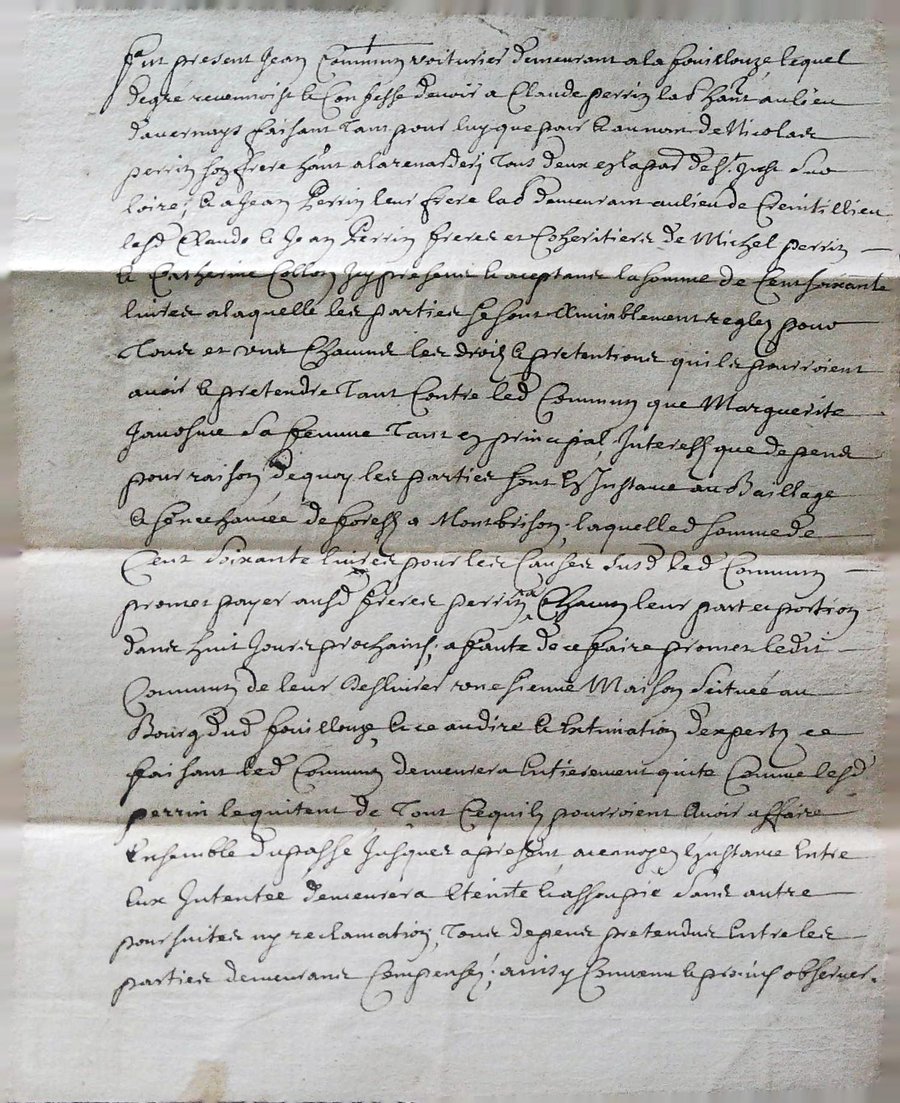 fut present Jean Commun voiturier demeurant a la fouillouze, lequel
degré reconnoist & Confesse devoir a Claude perrin lab. hant au lieu
d'avernays faisant Tant pour luy que pour & au nom de Nicolas
perrin son frere hant a la renardery Tous deux en la par de St. Just sur
loire, & a Jean Perrin leur frere lab demeurant au lieu de Creintillieu
lesd Claude & Jean Perrin freres et Coheritiers de Michel perrin
& Catherine Collon Icy presens & aceptans la somme de Cent soixante
livres a laquelle les parties se sont Amiablement reglez pour
Tous et uns Chacuns les droitz & pretentions quils pourroient
avoir & pretendre Tant Contre led Commun que Marguerite
sa femme Tant en principal, Interestz que depens
pour raison de quoy les parties sont En Instance au Baillage
& senechaucée de forestz a Montbrison, laquelled somme de
Cent soixante livres pour les Causes susd led Commun
promet payer ausd freres perrin a Chacun leur part et portion
dans huit Jours prochains, a faute de ce faire promet ledit
Commun de leur deslivrer une sienne Maison scituée au
Bourg dud fouillouze, & ce au dire & Extimation d'expertz ce
faisant led Commun demeurera Entierement quite Comme lesd
perrin le quitent de Tout Ce quilz pourroient Avoir affaire
Ensemble du passé Jusques a present, au moyen l'Instance Entre
Eux Intentée demeurera Eteinte & assoupie sans autre
poursuites ny reclamation, Tous depens pretendus Entre les
parties demeurans Compensez, ainsy Convenu & promis observer.